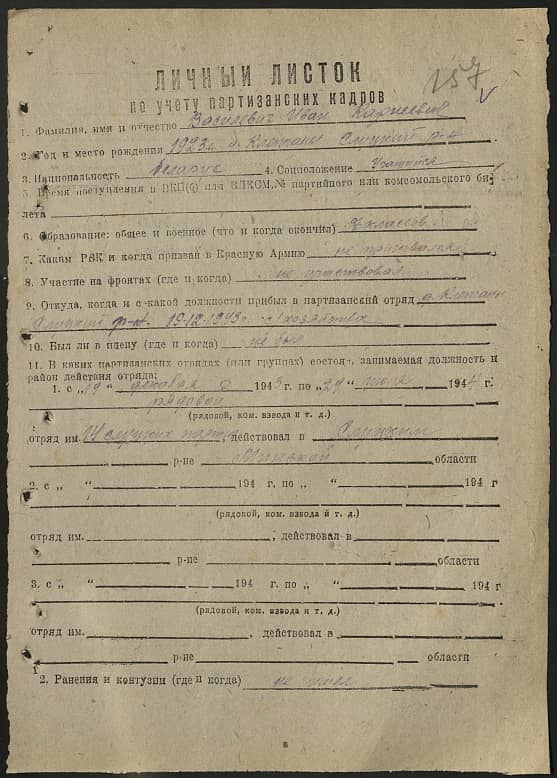 157
ЛИЧНЫЙ ЛИСТОК
по учету партизанских кадров
1. Фамилия, имя и отчество Василевич Иван
2. Год и место рождения 1923 г. д. Слуцкий р-н
3. Национальность беларус 4. Соцположение Учащийся
5. Время поступления в ВКП(б) или ВЛКСМ, № партийного или комсомольского би-
лета
6. Образование: общее и военное (что и когда окончил) классов
7. Каким РВК и когда призван в Красную Армию не призывался
8. Участие на фронтах (где и когда) не участвовал
9. Откуда, когда и с какой должности прибыл в партизанский отряд д.
Слуцкий р-н. 19-12-1943 г.
10. Был ли в плену (где и когда) не был
11. В каких партизанских отрядах (или группах) состоял, занимаемая должность и
район действия отряда:
1. с „19" декабря 1943 г. по „29" июня 1944 г.
рядовой
(рядовой, ком. взвода и т. д.)
отряд им. , действовал в Слуцком
р-не Минской области
2. с „ " 194 г. по „ " 194 г
(рядовой, ком. взвода и т. д.)
отряд им. , действовал в
р-не области
3. с „ " 194 г. по „ " 194 г
(рядовой, ком. взвода и т. д.)
отряд им. , действовал в
р-не области
12. Ранения и контузии (где и когда) не имел